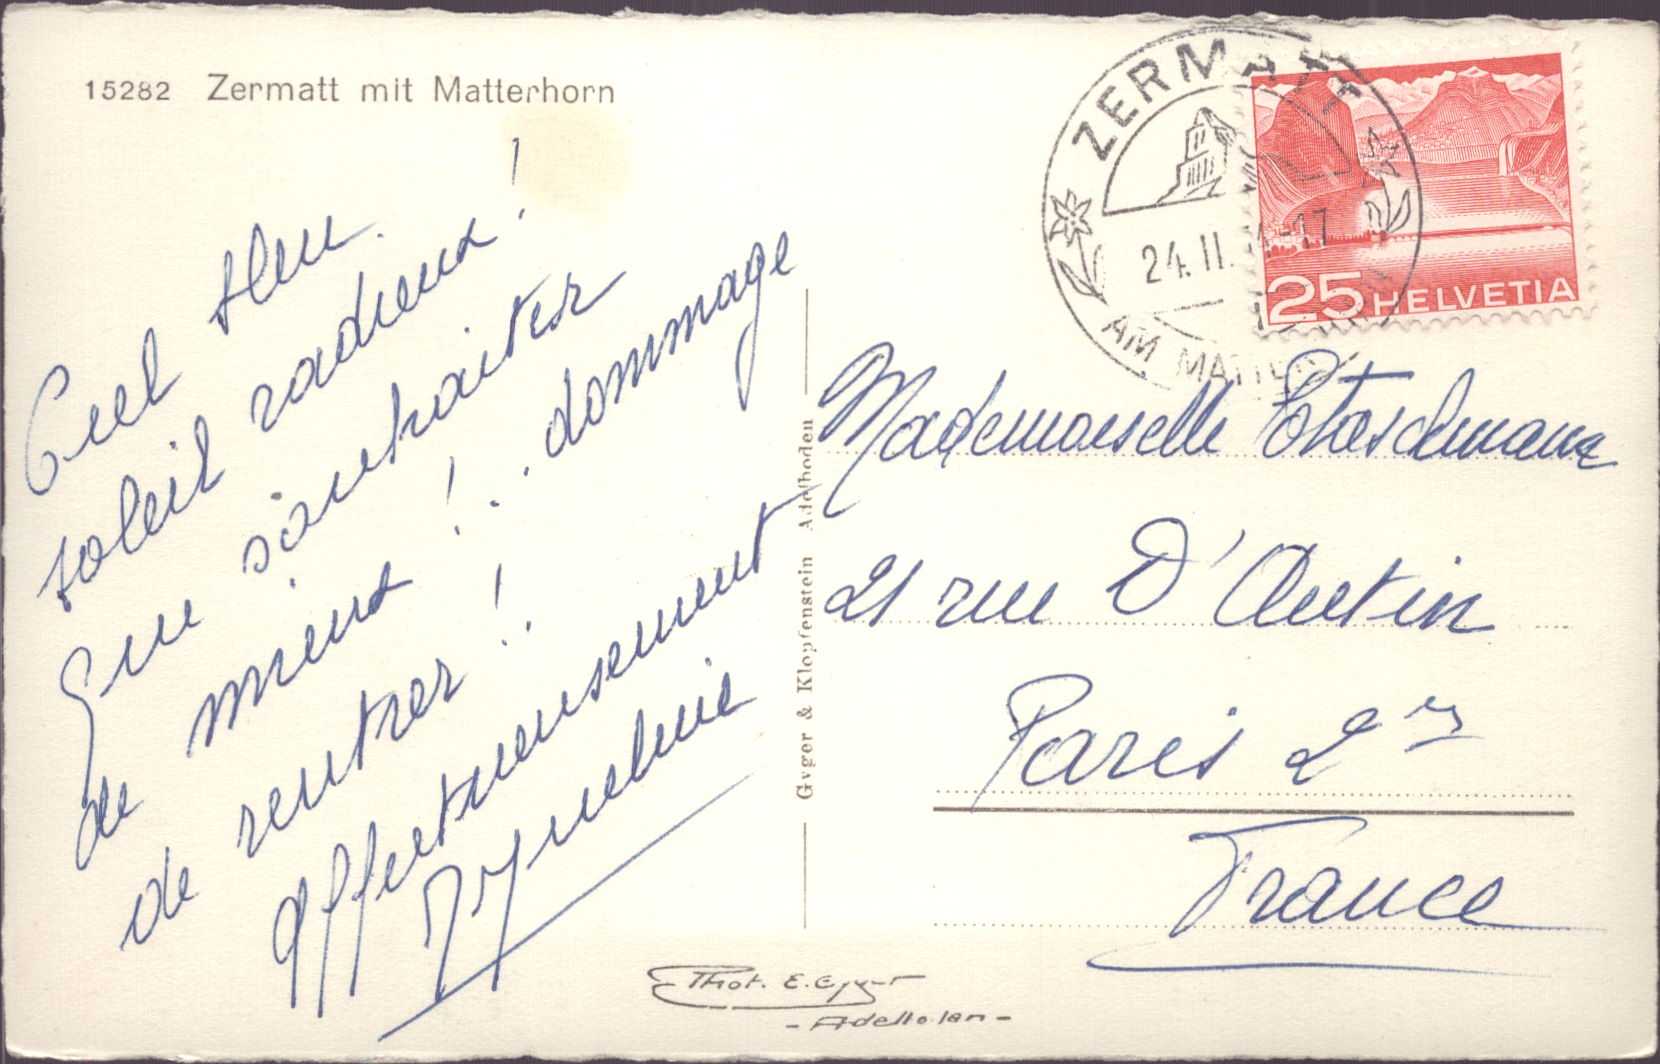 15282 Zermatt mit Matterhorn
Ciel bleu.
soleil radieux !
Que souhaiter
de mieux ! .. dommage
de rentrer ! ..
Affectueusement
Gyger & Klopfenstein Adelboden
ZERMATT
24.II. -17
AM MATTERHORN
25 HELVETIA
Mademoiselle
21 rue D'Antin
Paris 2
France
Phot. E. Gyger
- Adelboden -